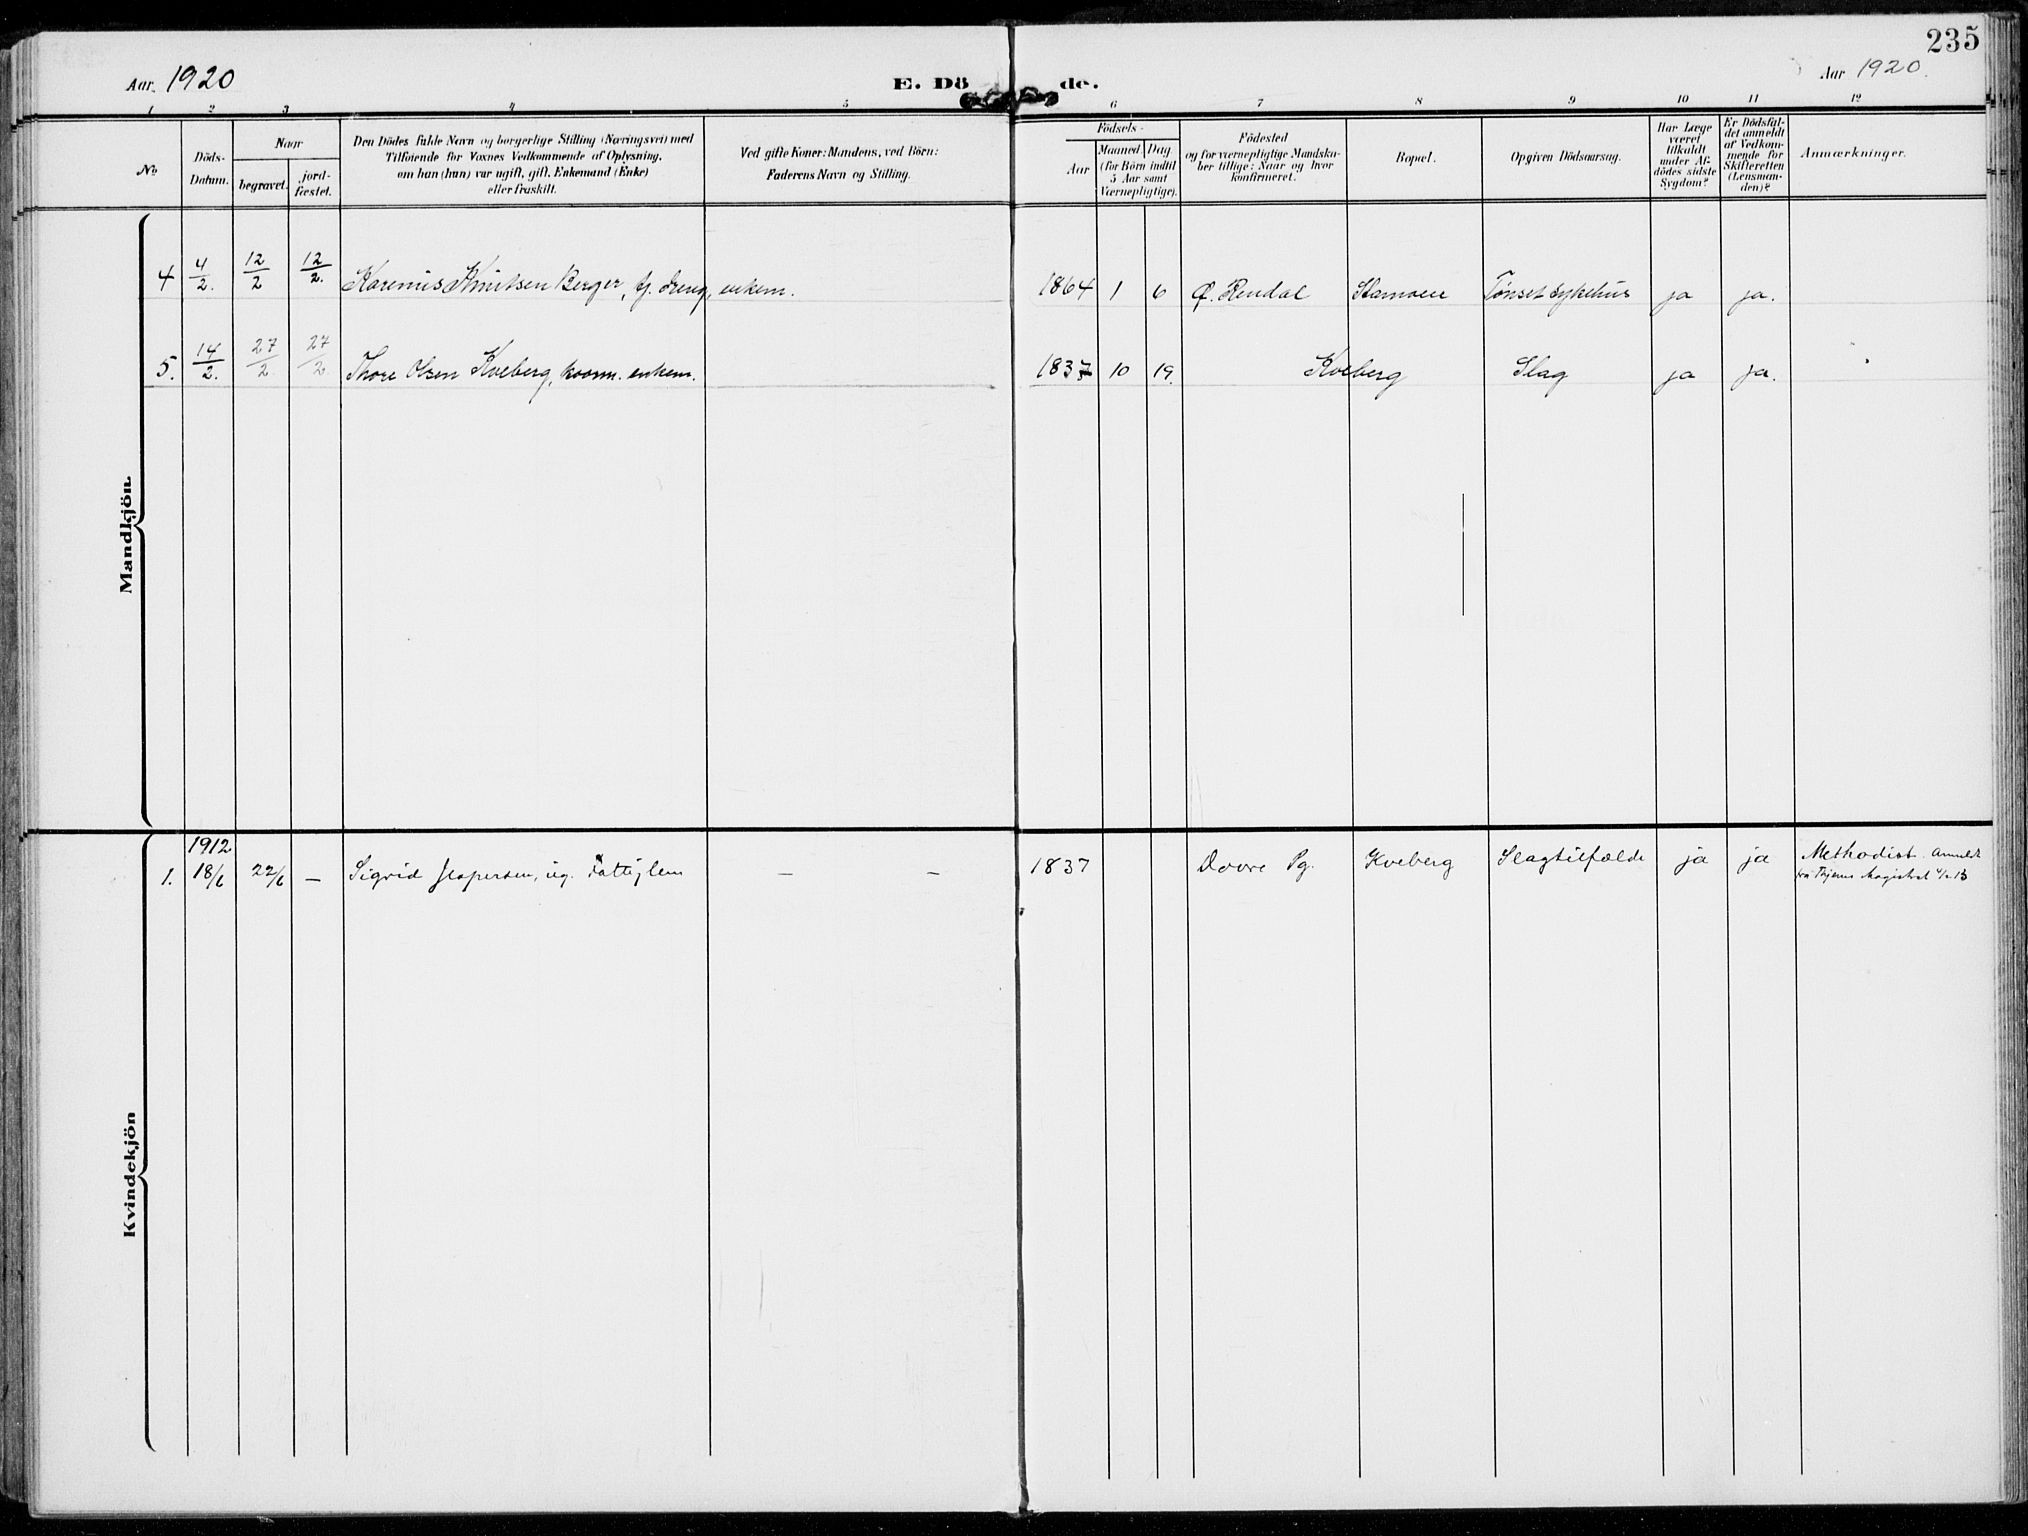 235
Aar 1920 E. Dö de. Aar 1920.
1 2 3 4 5 6 7 8 9 10 11 12
No
Döds-
Datum.
Naar
begravet.
jord-
fæstet.
Den Dödes fulde Navn og borgerlige Stilling (Næringsvei) med
Tilföiende for Voxnes Vedkommende af Oplysning,
om han (hun) var ugift, gift, Enkemand (Enke)
eller fraskilt.
Ved gifte Koner: Mandens, ved Börn:
Faderens Navn og Stilling.
Födsels-
Aar
Maaned Dag
(for Börn indtil
5 Aar samt
Værnepligtige).
Födested
og for værnepligtige Mandska-
ber tillige: Naar og hvor
konfirmeret.
Bopæl.
Opgiven Dödsaarsag.
Har Læge
været
tilkaldt
under Af-
dödes sidste
Sygdom?
Er Dödsfal-
det anmeldt
af Vedkom-
mende for
Skifteretten
(Lensman-
den)?
Anmærkninger.
Mandkjön.
4 4/2. 12/2 12/2. Karenus Knutsen Berger, tj. dreng, enkem. 1864 1 6 Ø. Rendal Tønset sykehus ja ja.
5. 14/2. 27/2 27/2. Thore Olsen Kveberg, enkem. 1837 10 19. Kveberg Slag ja ja.
Kvindekjön
1912
1. 18/6 22/6 — Sigrid Jespersen, ug. Fattiglem — — 1837 Dovre Pg. Kveberg Slagtilfælde ja ja Methodist. Anmeldt
Magistrat